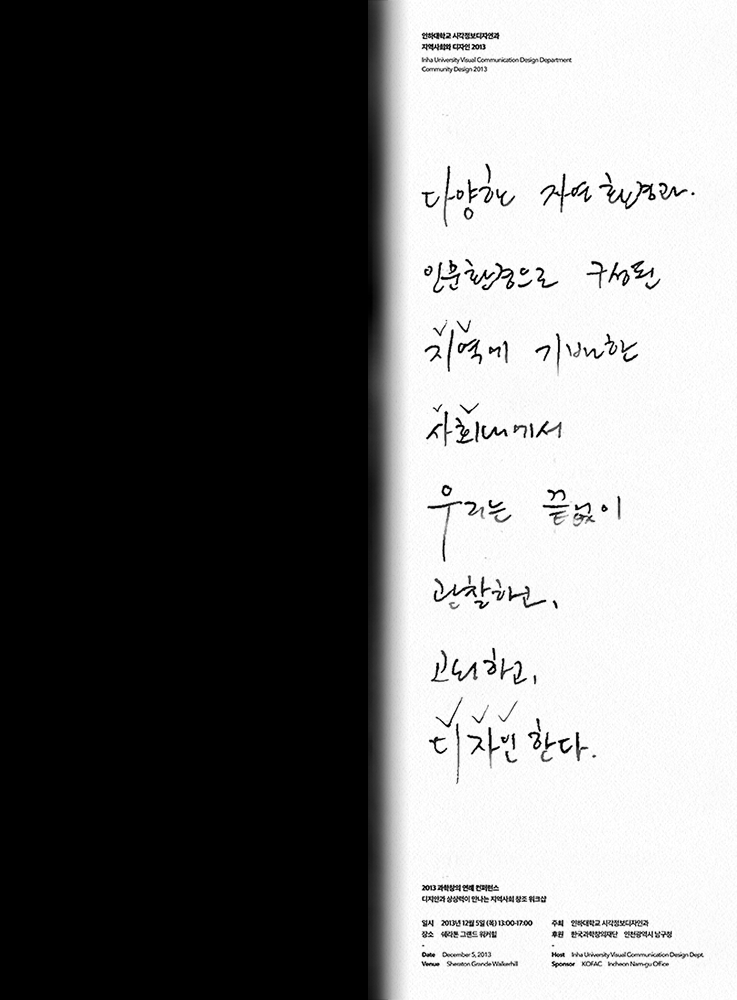 인하대학교 시각정보디자인과
지역사회와 디자인 2013
Inha University Visual Communication Design Department
Community Design 2013
다양한 자연환경과
인문환경으로 구성된
지역에 기반한
사회내에서
우리는 끝없이
관찰하고,
고뇌하고,
디자인한다.
2013 과학창의 연례 컨퍼런스
디자인과 상상력이 만나는 지역사회 창조 워크샵
일시 2013년 12월 5일 (목) 13:00-17:00
장소 쉐라톤 그랜드 워커힐
-
Date December 5, 2013
Venue Sheraton Grande Walkerhill
주최 인하대학교 시각정보디자인과
후원 한국과학창의재단 인천광역시 남구청
-
Host Inha University Visual Communication Design Dept.
Sponsor KOFAC Incheon Nam-gu Office